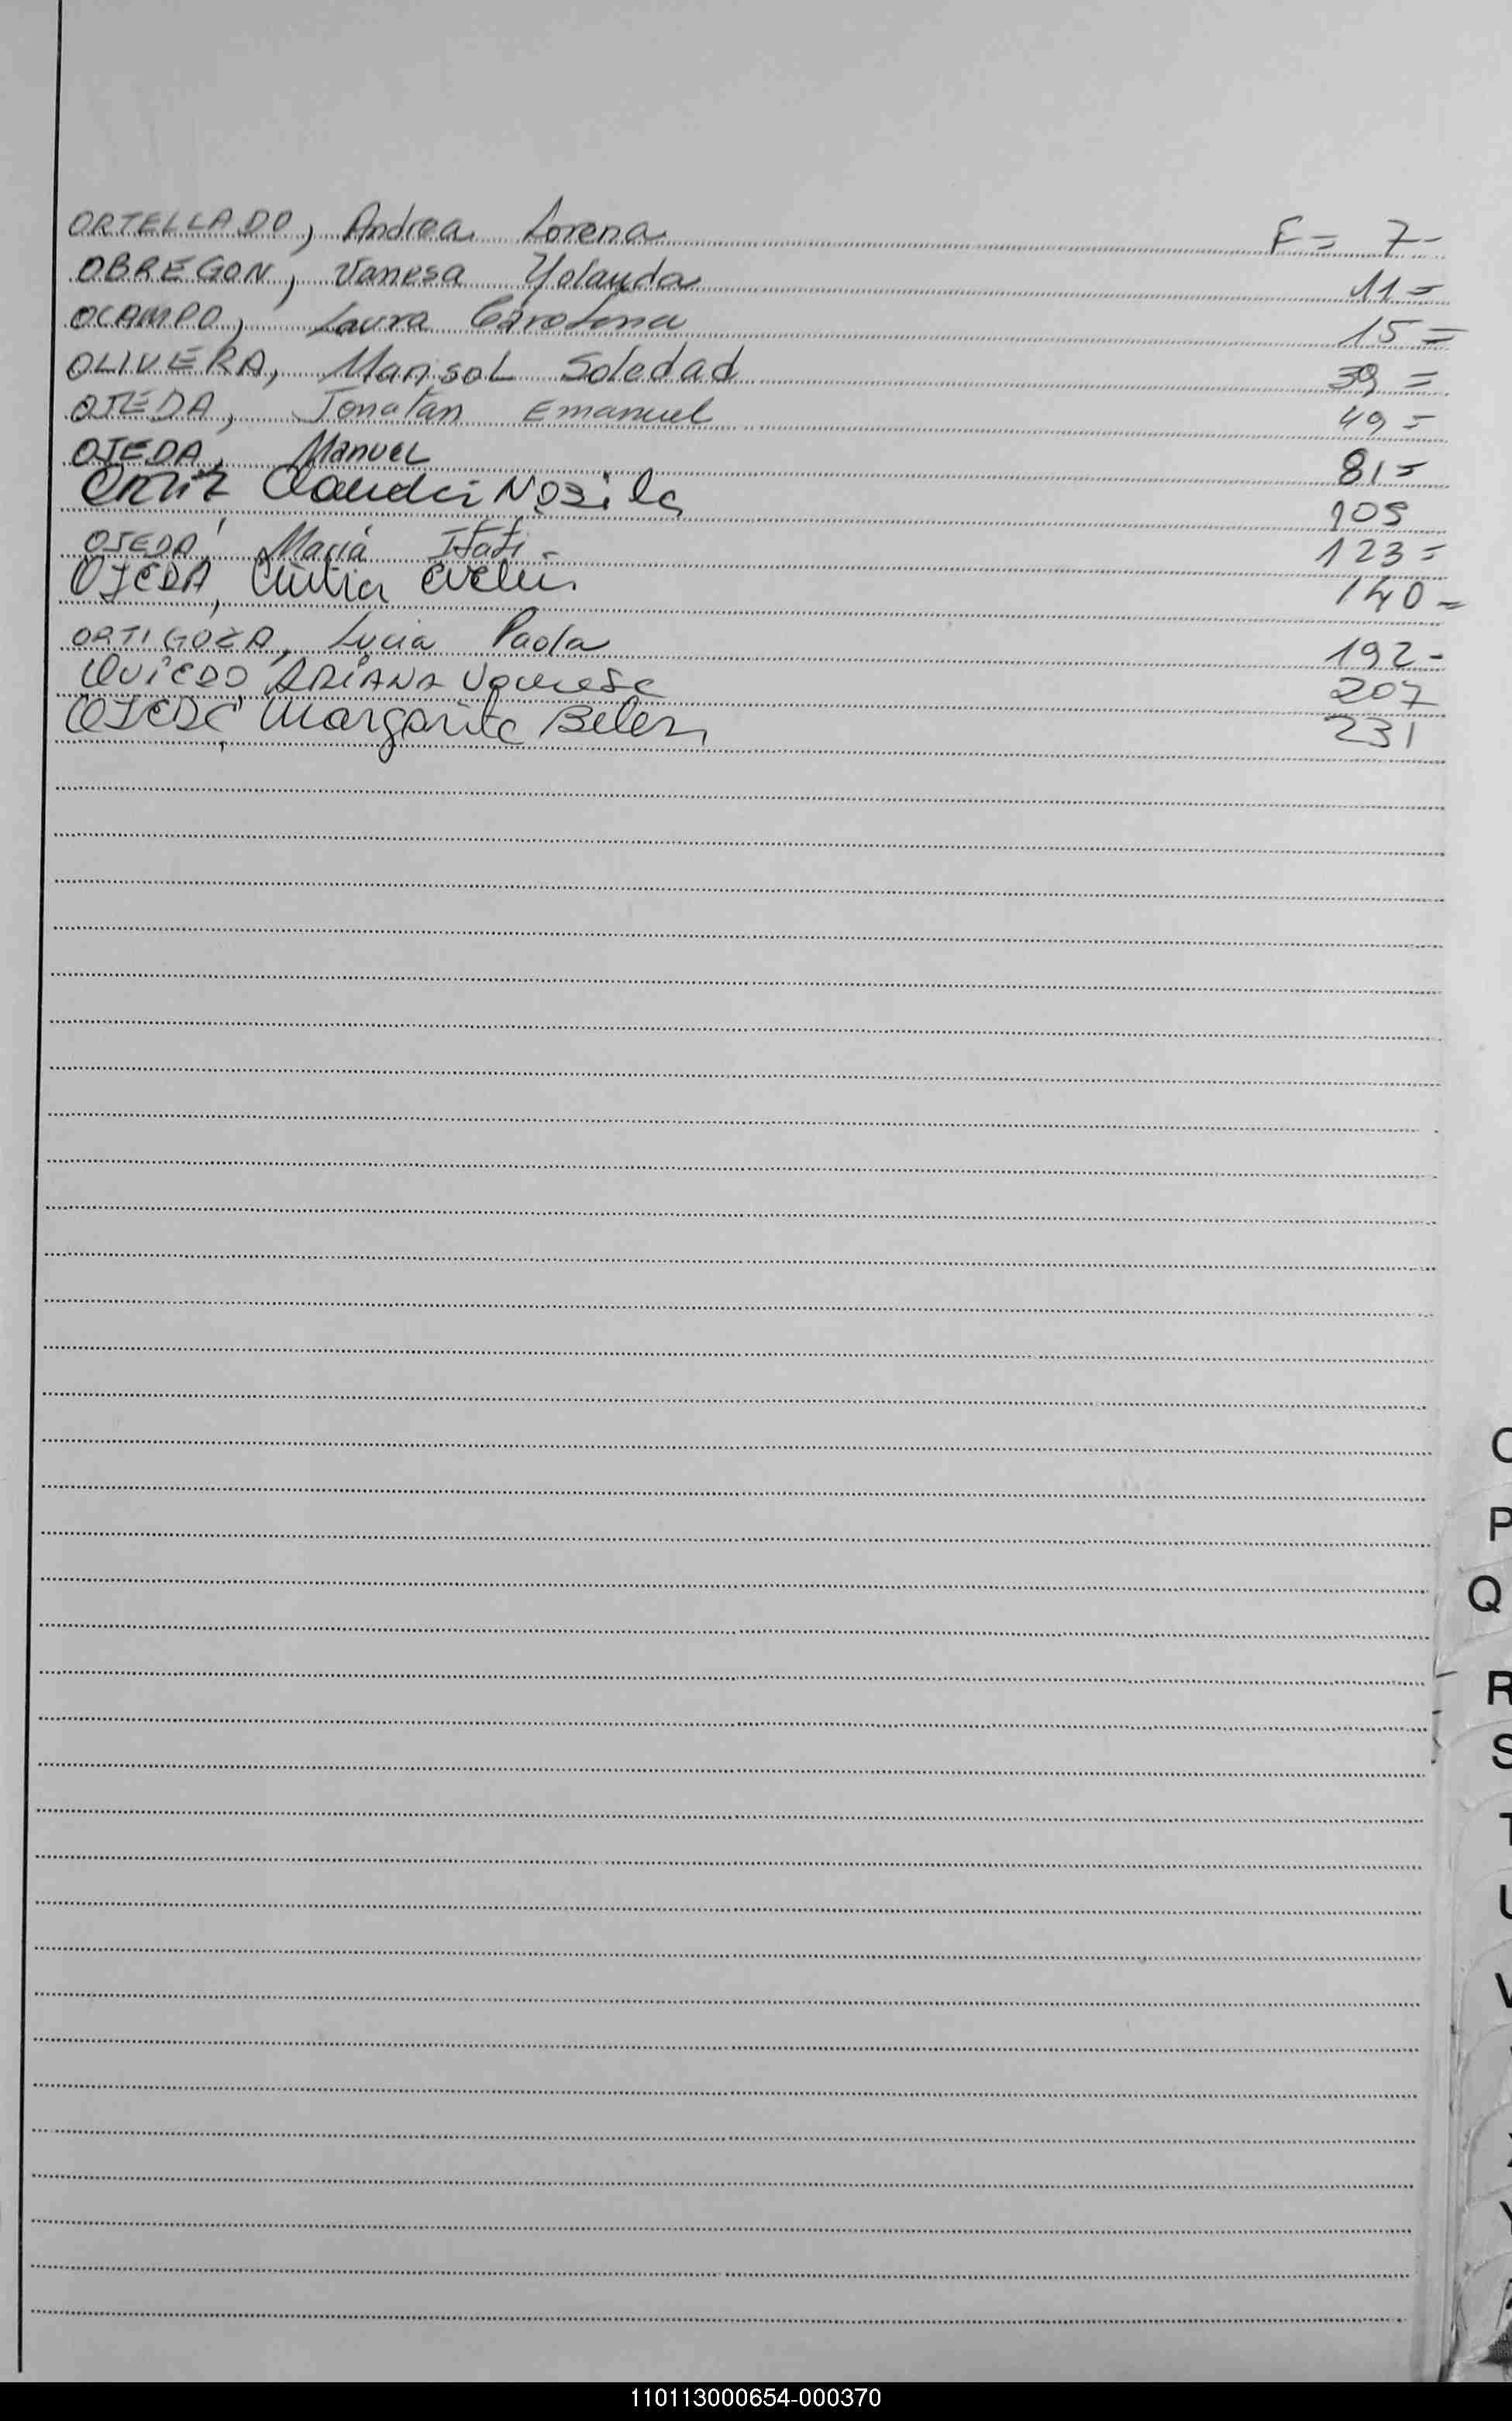 ORTELLADO, Andrea Lorena F = 7-
OBREGON, Vanesa Yolanda 11 =
OCAMPO, Laura Carolina 15 =
OLIVERA, Marisol Soledad 39 =
OJEDA, Jonatan Emanuel 49 =
OJEDA, Manuel 81 =
Ortiz Claudia 105
OJEDA, María Itatí - 123 =
OJEDA, Cintia Evelin 140 =
ORTIGOZA, Lucia Paola 192 -
OVIEDO ARIANA Vanesa 207
OJEDA, Margarita Belen 231
P
Q
R
S
T
U
V
Y
110113000654-000370